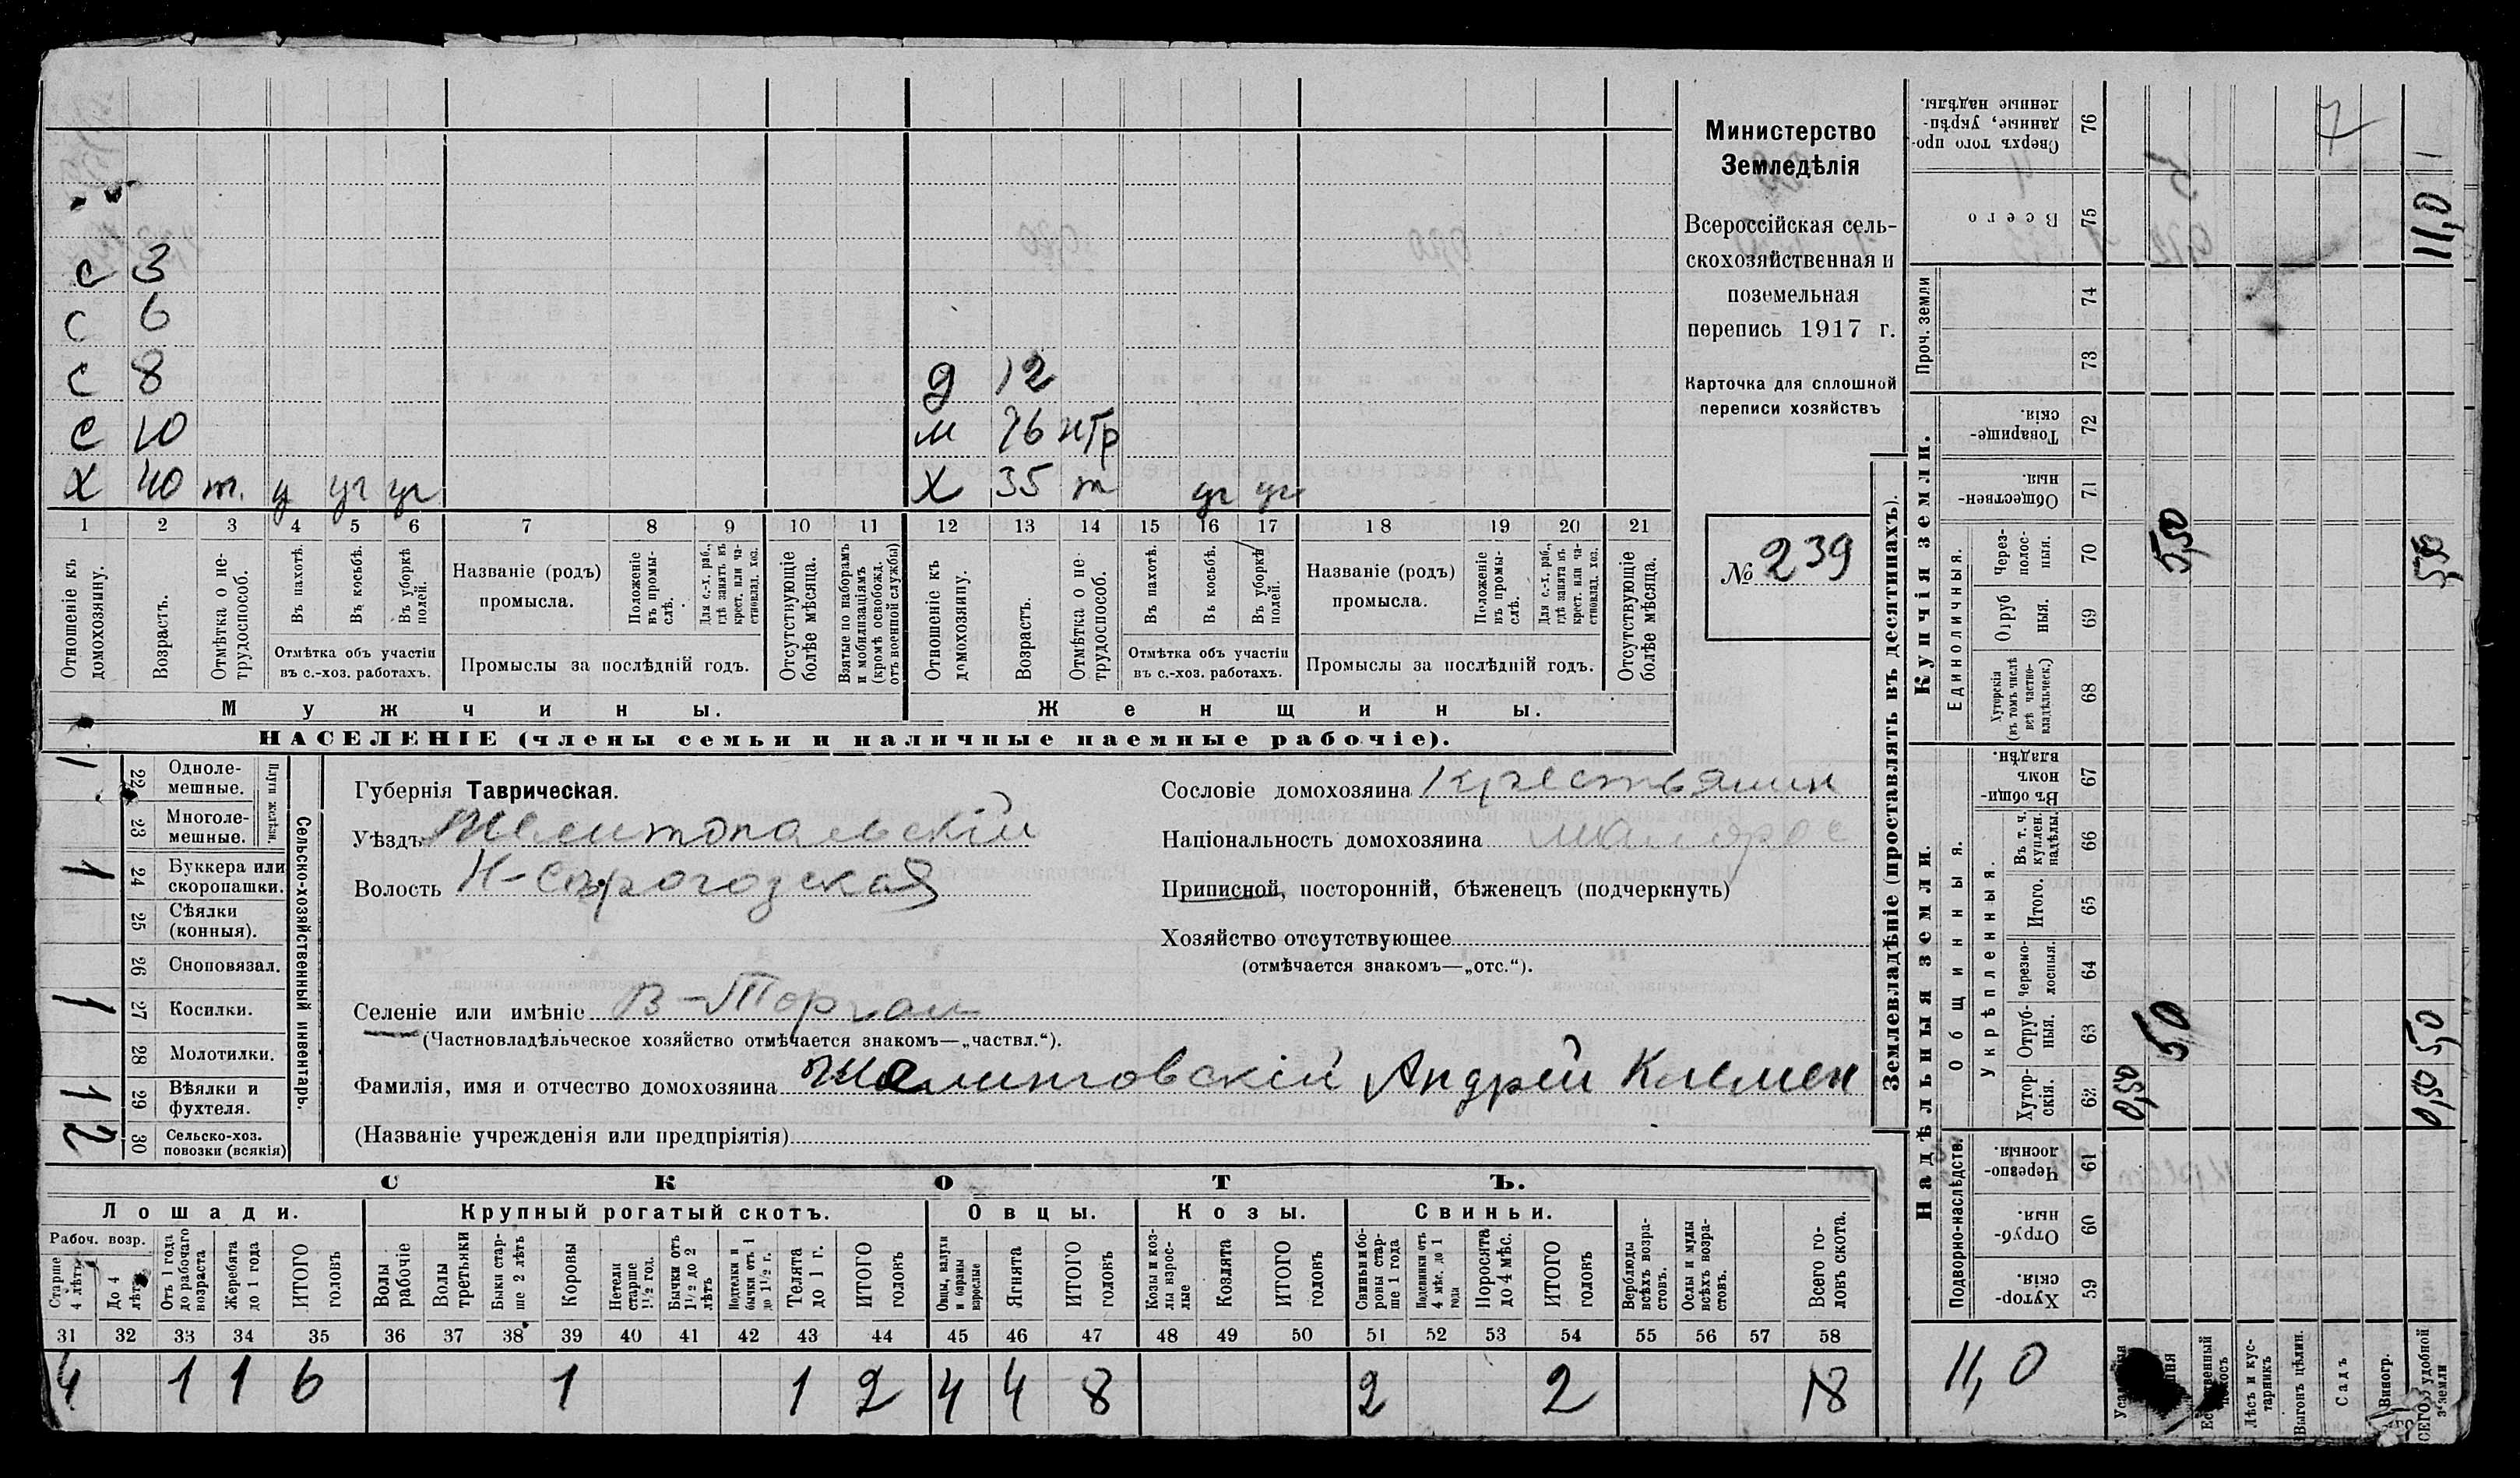 с 3
с 6
с 8 д 12
с 10 м 76 нтр
х 40 т. у уг уг х 35 т уг уг
1 2 3 4 5 6 7 8 9 10 11 12 13 14 15 16 17 18 19 20 21
Отношеніе къ домохозяину.
Возрастъ.
Отмѣтка о нетрудоспособ.
Въ пахотѣ.
Въ косьбѣ.
Въ уборкѣ полей.
Отмѣтка объ участіи въ с.-хоз. работахъ.
Названіе (родъ) промысла.
Положеніе въ промыслѣ.
Для с.-х. раб., гдѣ занятъ въ крест. или частновлад. хоз.
Промыслы за послѣдній годъ.
Отсутствующіе болѣе мѣсяца.
Взятые по наборамъ и мобилизаціямъ (кромѣ освобожд. отъ военной службы)
Отношеніе къ домохозяину.
Возрастъ.
Отмѣтка о нетрудоспособ.
Въ пахотѣ.
Въ косьбѣ.
Въ уборкѣ полей.
Отмѣтка объ участіи въ с.-хоз. работахъ.
Названіе (родъ) промысла.
Положеніе въ промыслѣ.
Для с.-х. раб., гдѣ занята въ крест. или частновлад. хоз.
Промыслы за послѣдній годъ.
Отсутствующіе болѣе мѣсяца.
Мужчины.
Женщины.
НАСЕЛЕНІЕ (члены семьи и наличные наемные рабочіе).
Министерство
Земледѣлія
Всероссійская сель-
скохозяйственная и
поземельная
перепись 1917 г.
Карточка для сплошной
переписи хозяйствъ
№ 239
Сельско-хозяйственный инвентарь.
Плуги желѣзн.
1 22 Одноле-мешные.
23 Многоле-мешные.
1 24 Буккера или скоропашки.
25 Сѣялки (конныя).
26 Сноповязал.
1 27 Косилки.
28 Молотилки.
1 29 Вѣялки и фухтеля.
2 30 Сельско-хоз. повозки (всякія)
Губернія Таврическая.
Уѣздъ Мелитопальскій
Волость Н-Сѣрогозская
Селеніе или имѣніе В-Торгаи
(Частновладѣльческое хозяйство отмѣчается знакомъ—„частвл.“).
Фамилія, имя и отчество домохозяина Андрей Климен
(Названіе учрежденія или предпріятія)
Сословіе домохозяина Крестьянин
Національность домохозяина малорос
Приписной, посторонній, бѣженецъ (подчеркнуть)
Хозяйство отсутствующее
(отмѣчается знакомъ—„отс.“).
СКОТЪ.
Лошади.
Крупный рогатый скотъ.
Овцы.
Козы.
Свиньи.
Рабоч. возр.
Старше 4 лѣтъ
До 4 лѣтъ
Отъ 1 года до рабочаго возраста
Жеребята до 1 года
ИТОГО головъ
Волы рабочіе
Волы третьяки
Быки старше 2 лѣтъ
Коровы
Нетели старше 1½ год.
Бычки отъ 1½ до 2 лѣтъ
Подтелки и бычки отъ 1 до 1½ г.
Телята до 1 г.
ИТОГО головъ
Овцы, валухи и бараны взрослые
Ягнята
ИТОГО головъ
Козы и козлы взрослые
Козлята
ИТОГО головъ
Свиньи и боровы старше 1 года
Подсвинки отъ 4 мѣс. до 1 года
Поросята до 4 мѣс.
ИТОГО головъ
Верблюды всѣхъ возрастовъ.
Ослы и мулы всѣхъ возрастовъ.
Всего головъ скота.
31 32 33 34 35 36 37 38 39 40 41 42 43 44 45 46 47 48 49 50 51 52 53 54 55 56 57 58
4 1 1 6 1 1 2 4 4 8 2 2 18
Землевладѣніе (проставлять въ десятинахъ).
Надѣльныя земли.
Купчія земли.
Проч. земли
Подворно-наслѣдств.
Общинныя.
Укрѣпленныя.
Единоличныя.
Сверхъ того проданные, укрѣпленные надѣлы. 76
Всего 75 11,0
74
73
Товарищескія. 72
Общественныя. 71
Черезполосныя. 70 5,50 5,50
Отрубныя. 69
Хуторскія (въ томъ числѣ всѣ частновладѣльческ.) 68
Въ общинномъ владѣн. 67
Въ т. ч. куплен. надѣлы. 66
Итого. 65
Черезполосныя. 64
Отрубныя. 63 5,0 5,0
Хуторскія. 62 0,50 0,50
Черезполосныя. 61
Отрубныя. 60
Хуторскія. 59
11,0
Лѣсъ и кустарникъ
Выгонъ цѣлин.
Садъ
Виногр.
ВСЕГО удобной земли
7